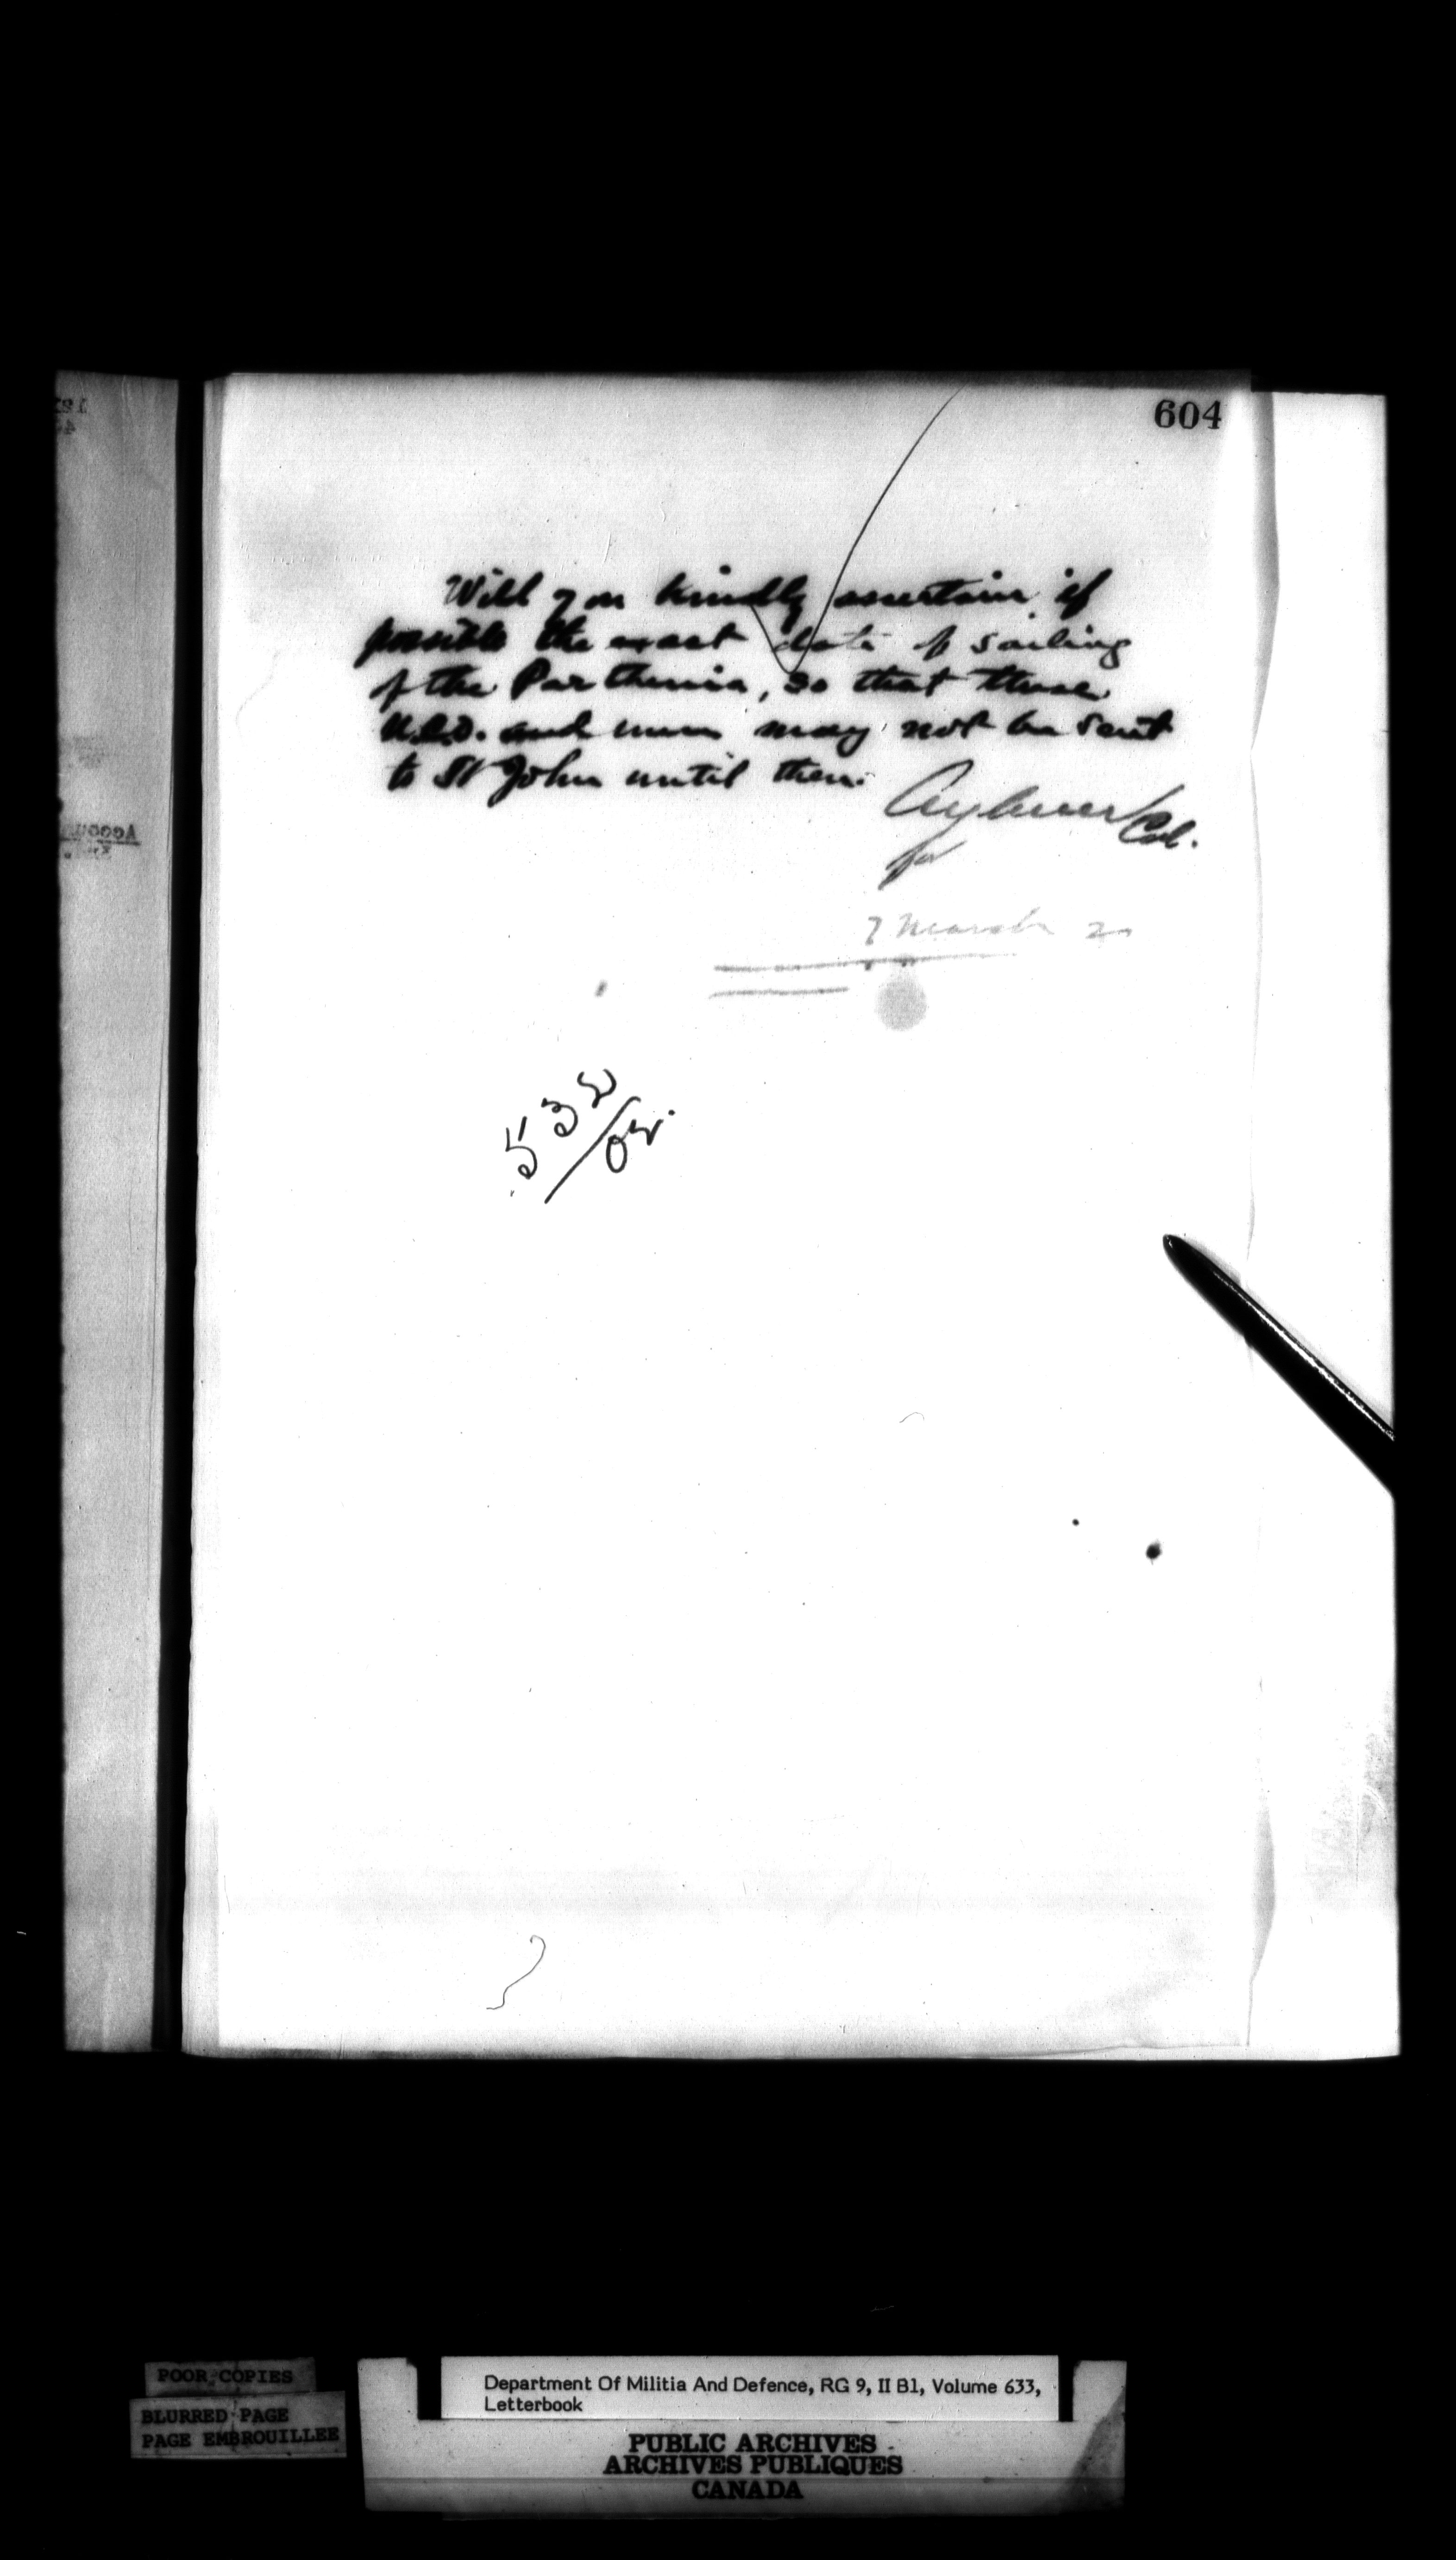 604
Will you kindly ascertain if
possible the exact date of sailing
of the Parthenia, so that these
N.C.O. and men may not be sent
to St John until then.
Aylmer Col.
for
7 March 2
532/02.
POOR COPIES
BLURRED PAGE
PAGE EMBROUILLEE
Department Of Militia And Defence, RG 9, II B1, Volume 633,
Letterbook
PUBLIC ARCHIVES
ARCHIVES PUBLIQUES
CANADA